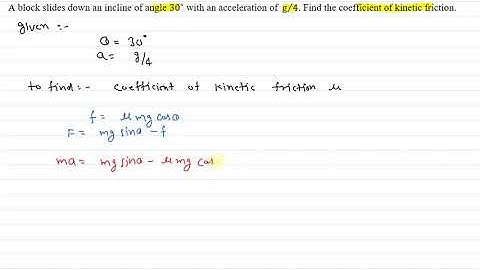 A block slides down an incline of angle 30° with an acceleration of g/4. Find the coefficient of kinetic friction.
given :-
θ = 30°
a = g/4
to find :- coefficient of kinetic friction μ
f = μ mg cosθ
F = mg sinθ - f
ma = mg sinθ - μ mg cos